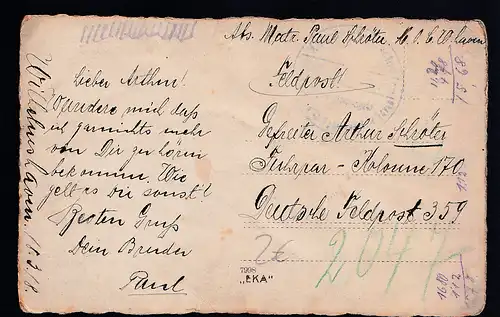 Abs. Matr. Paul Schröter, M. O. C. W.haven
Feldpost!
Wilhelmshaven. 11.3.18.
Lieber Arthur!
Wundere mich daß
ich garnichts mehr
von Dir zu hören
bekomme. Wie
geht es Dir sonst!
Besten Gruß
Dein Bruder
Paul
Gefreiter Arthur Schröter
Fuhrpar-Kolonne 170
Deutsche Feldpost 359
2€
2047
7998
„EKA“
112